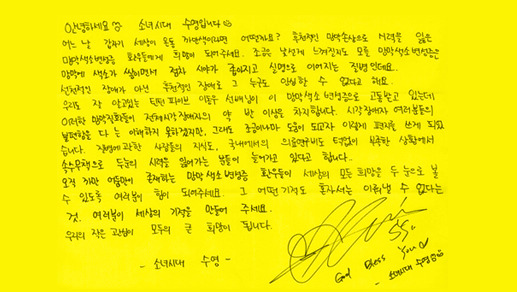 안녕하세요 소녀시대 수영입니다
어느 날 갑자기 세상이 온통 까만색이라면 어떨까요? 후천적인 망막손상으로 시력을 잃은
망막색소변성증 환우들에게 희망이 되어주세요. 조금은 낯설게 느껴질지도 모를 망막색소변성증은
망막에 색소가 쌓이면서 점차 시야가 좁아지고 실명으로 이어지는 질병인데요..
선천적인 장애가 아닌 후천적인 장애로 그 누구도 안심할 수 없다고 해요.
우리도 잘 알고있는 틴틴 파이브 이동우 선배님이 이 망막색소변성증으로 고통받고 있는데
이러한 망막질환들이 전체시각장애자의 약 반 이상을 차지합니다. 시각장애자 여러분들의
불편함을 다 는 이해하지 못하겠지만, 그래도 조금이나마 도움이 되고자 이렇게 편지를 쓰게 되었
습니다. 질병에 관한 사람들의 지식도, 국내에서의 의료연구비도 터없이 부족한 상황에서
속수무책으로 두눈의 시력을 잃어가는 분들이 늘어가고 있다고 합니다..
오직 까만 어둠만이 존재하는 망막색소변성증 환우들이 세상의 모든 희망을 두 눈으로 볼
수 있도록 여러분이 힘이 되어주세요. 그 어떤 기적도 혼자서는 이뤄낼 수 없다는
것. 여러분이 세상의 기적을 만들어 주세요..
우리의 작은 관심이 모두의 큰 희망이 됩니다.
- 소녀시대 수영 -
God Bless You
- 소녀시대 수영